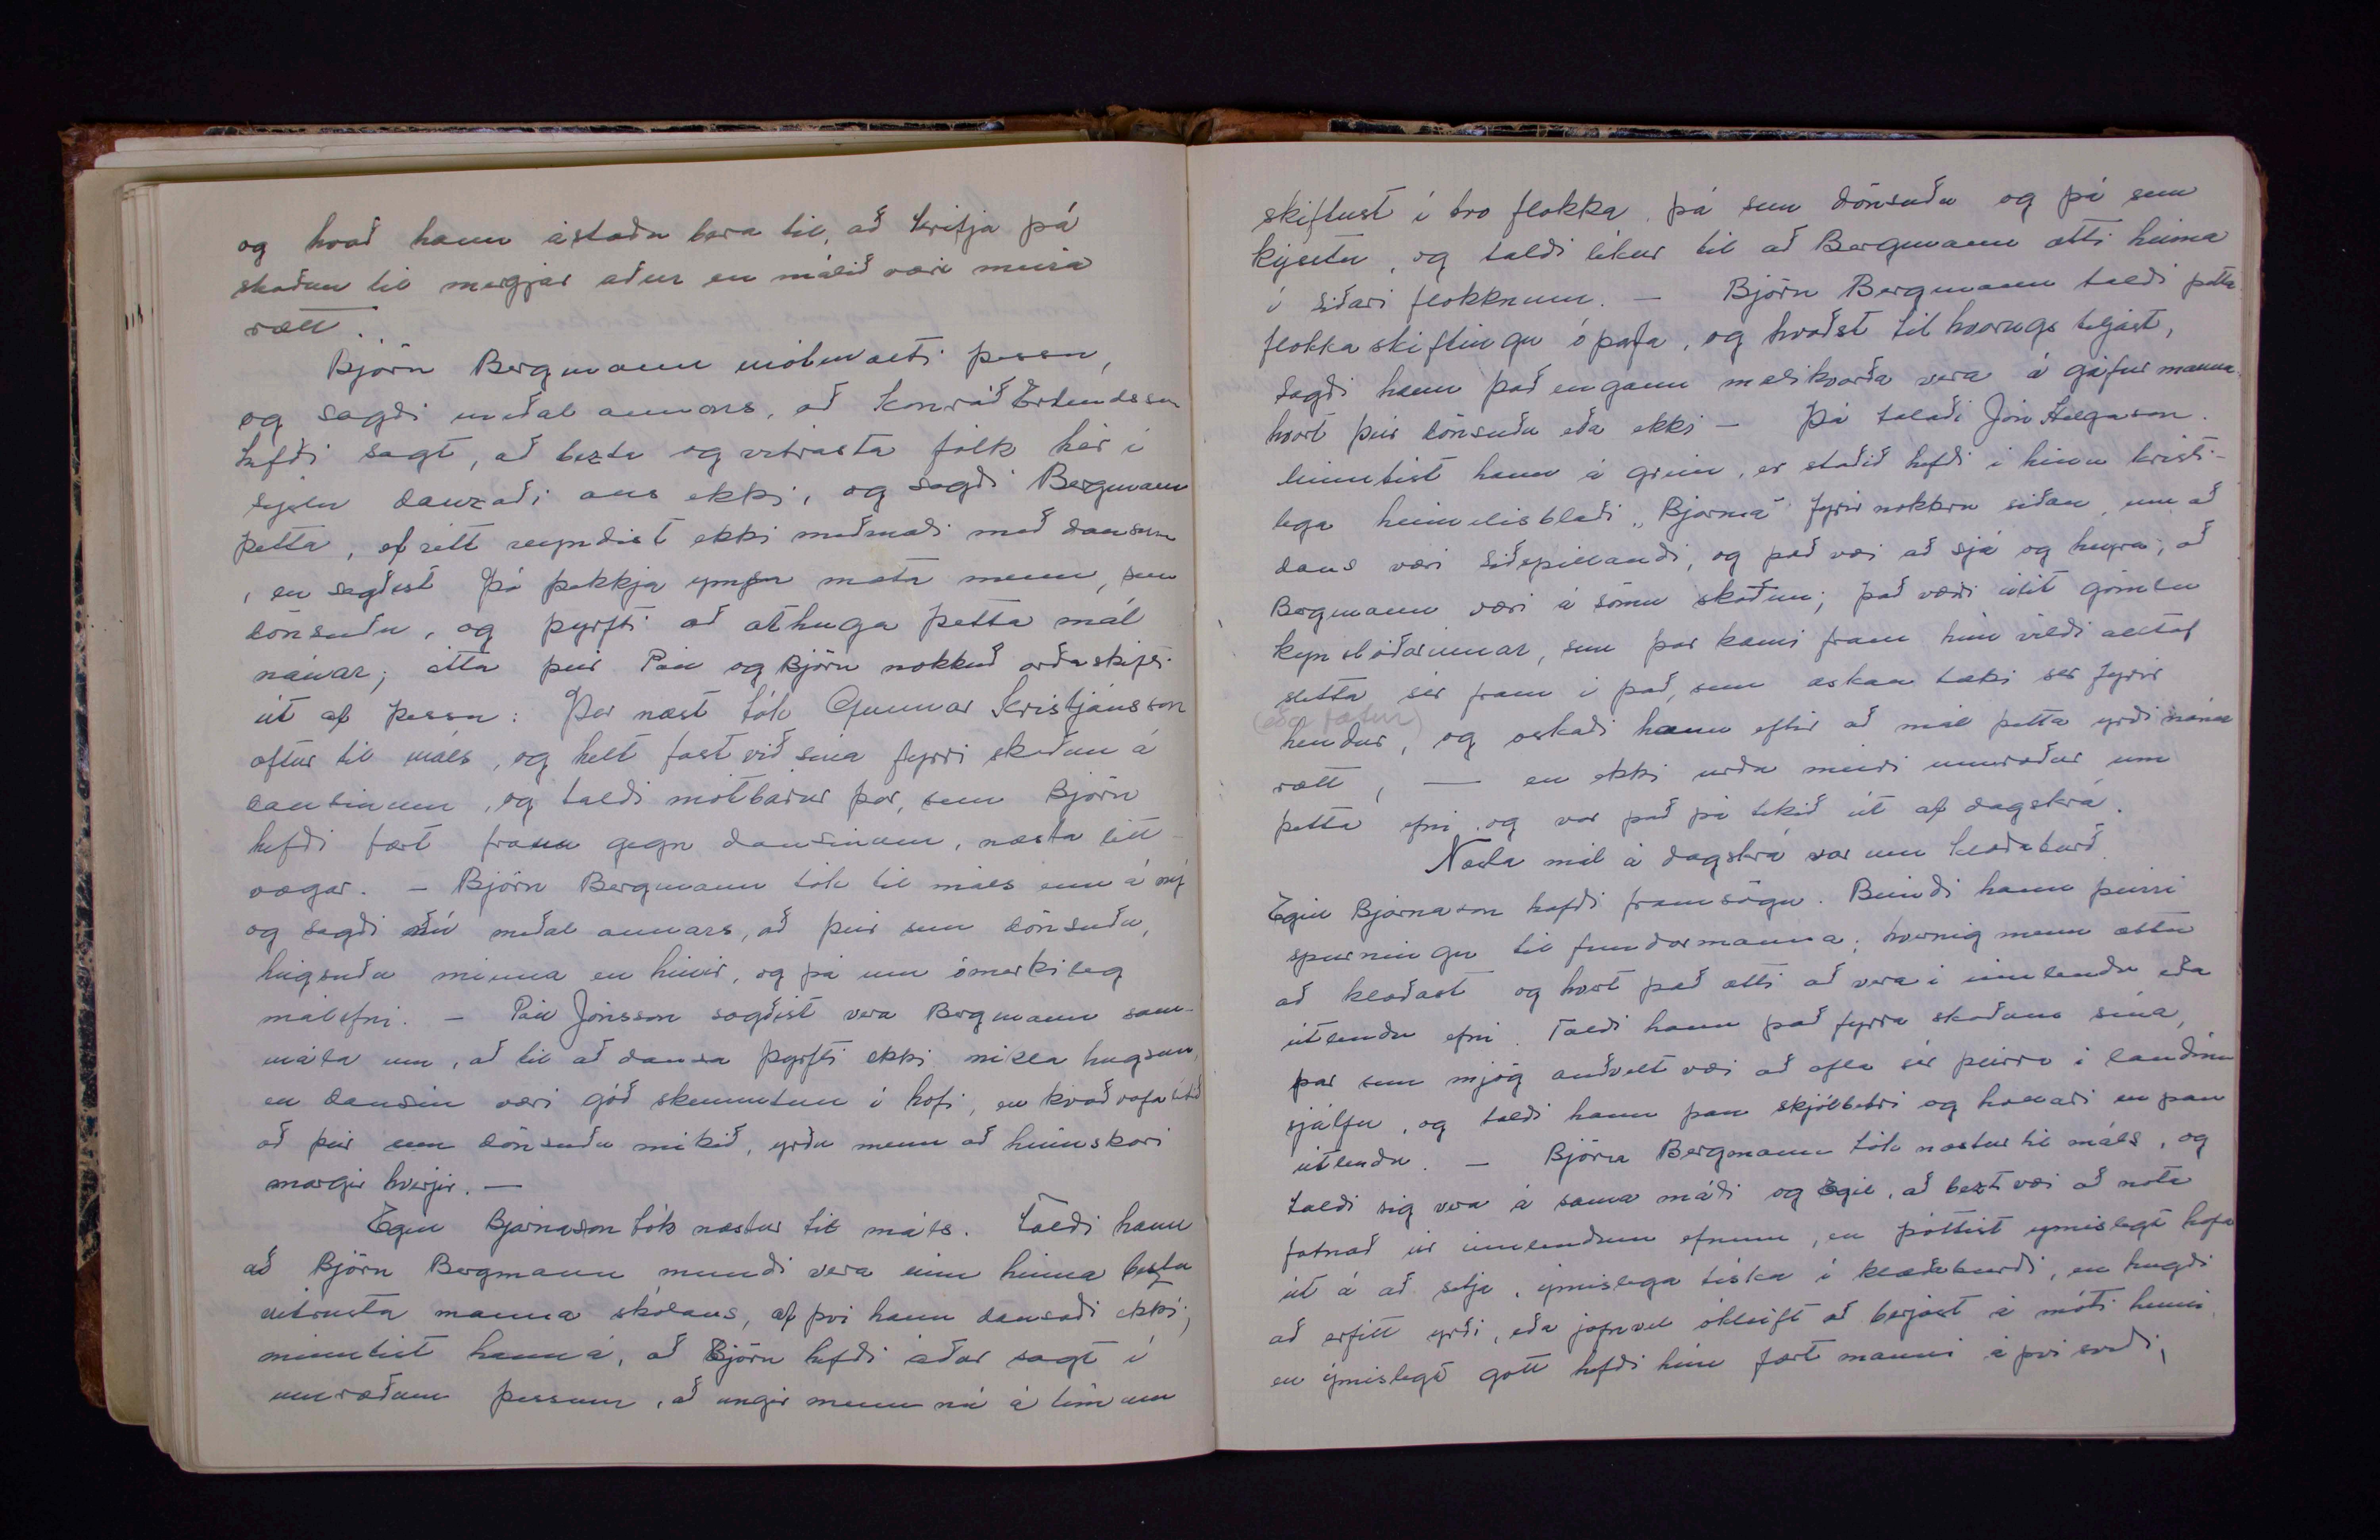 og hvað hann ástæðu bera til, að krifja þá
skoðun til mergjar áður en málið væri meira
rætt.
Björn Bergmann mótmælti þessu,
og sagði meðal annars, að Konráð Erlendsson
hefði sagt, að bezta og vitrasta fólk hér í
sýslu danzaði ans ekki, og sagði Bergmann
þetta, ef rétt reyndist ekki meðmæli með dansinum
, en sagðist þó þekkja ymsa mæta menn, sem
dönsuðu, og þyrfti að athuga þetta mál
nánar; átta þeir Páll og Björn nokkuð orðaskifti
út af þessu: Þar næst tók Gunnar Kristjánsson
aftur til máls, og helt fast við sína fyrri skoðun á
dansinum, og taldi mótbárur þær, sem Björn
hefði fært fram gegn dansinum, næsta létt-
vægar. - Björn Bergmann tók til máls enn á ný
og sagði nú meðal annars, að þeir sem dönsuðu,
hugsuðu minna en hinir, og þá um ómerkileg
málefni. - Páll Jónsson sagðist vera Bergmann sam-
mála um, að til að dansa þyrfti ekki mikla hugsun,
en dansin væri góð skemmtun í hófi, en kvað vafa lítið
að þeir sem dönsuðu mikið, yrðu menn að heimskari
margir hverjir. —
Egill Bjarnason tók næstur til máls. Taldi hann
að Björn Bergmann mundi vera einn hinna beztu
vitrustu manna skólans, af því hann dansaði ekki;
minntist hann á, að Björn hefði áður sagt í
umræðum þessum, að ungir menn nú á tímum
skiftust í tvo flokka, þá sem dönsuðu og þá sem
kýsetu, og taldi líkur til að Bergmann ætti heima
í síðari flokknum. — Björn Bergmann taldi þetta
flokkaskiftingu óþarfa, og kvaðst til hvorugs teljast,
sagði hann það engann mælikvarða vera á gáfur manna
hvort þeir dönsuðu eða ekki — Þá talaði Jón Helgason.
Minntist hann á grein, er staðið hefði í hinu kristi-
lega heimilisblaði „Bjarma" fyrir nokkru síðan, um að
dans væri siðspillandi, og það væri að sjá og heyra, að
Bergmann væri á sömu skoðun; það væri álit gömlu
kynslóðarinnar, sem þar kæmi fram hún vildi alltaf
sletta sér fram í það, sem æskan tæki sér fyrir
(eða fætur)
hendur, og óskaði hann eftir að mál þetta yrði nánar
rætt, — en ekki urðu meiri umræður um
þetta efni og var það þá tekið út af dagskrá.
Næsta mál á dagskrá var um klæðaburð.
Egill Bjarnason hafði framsögu. Beindi hann þeirri
spurningu til fundarmanna; hvernig menn ættu
að klæðast og hvort það ætti að vera í innlendu eða
útlendu efni. Taldi hann það fyrra skoðun sína,
þar sem mjög auðvelt væri að afla sér þeirra í landinu
sjálfu, og taldi hann þau skjólbetri og hollari en þau
útlendu. — Björn Bergmann tók næstur til máls, og
taldi sig vera á sama máði og Egil, að bezt væri að nota
fatnað úr innlendum efnum, en þóttist ýmislegt hafa
út á að setja, ýmislega tísku í klæðaburði, en hugði
að erfitt yrði, eða jafnvel ókleift að berjast á móti henni,
en ýmislegt gott hefði hún fært manni á því sviði,